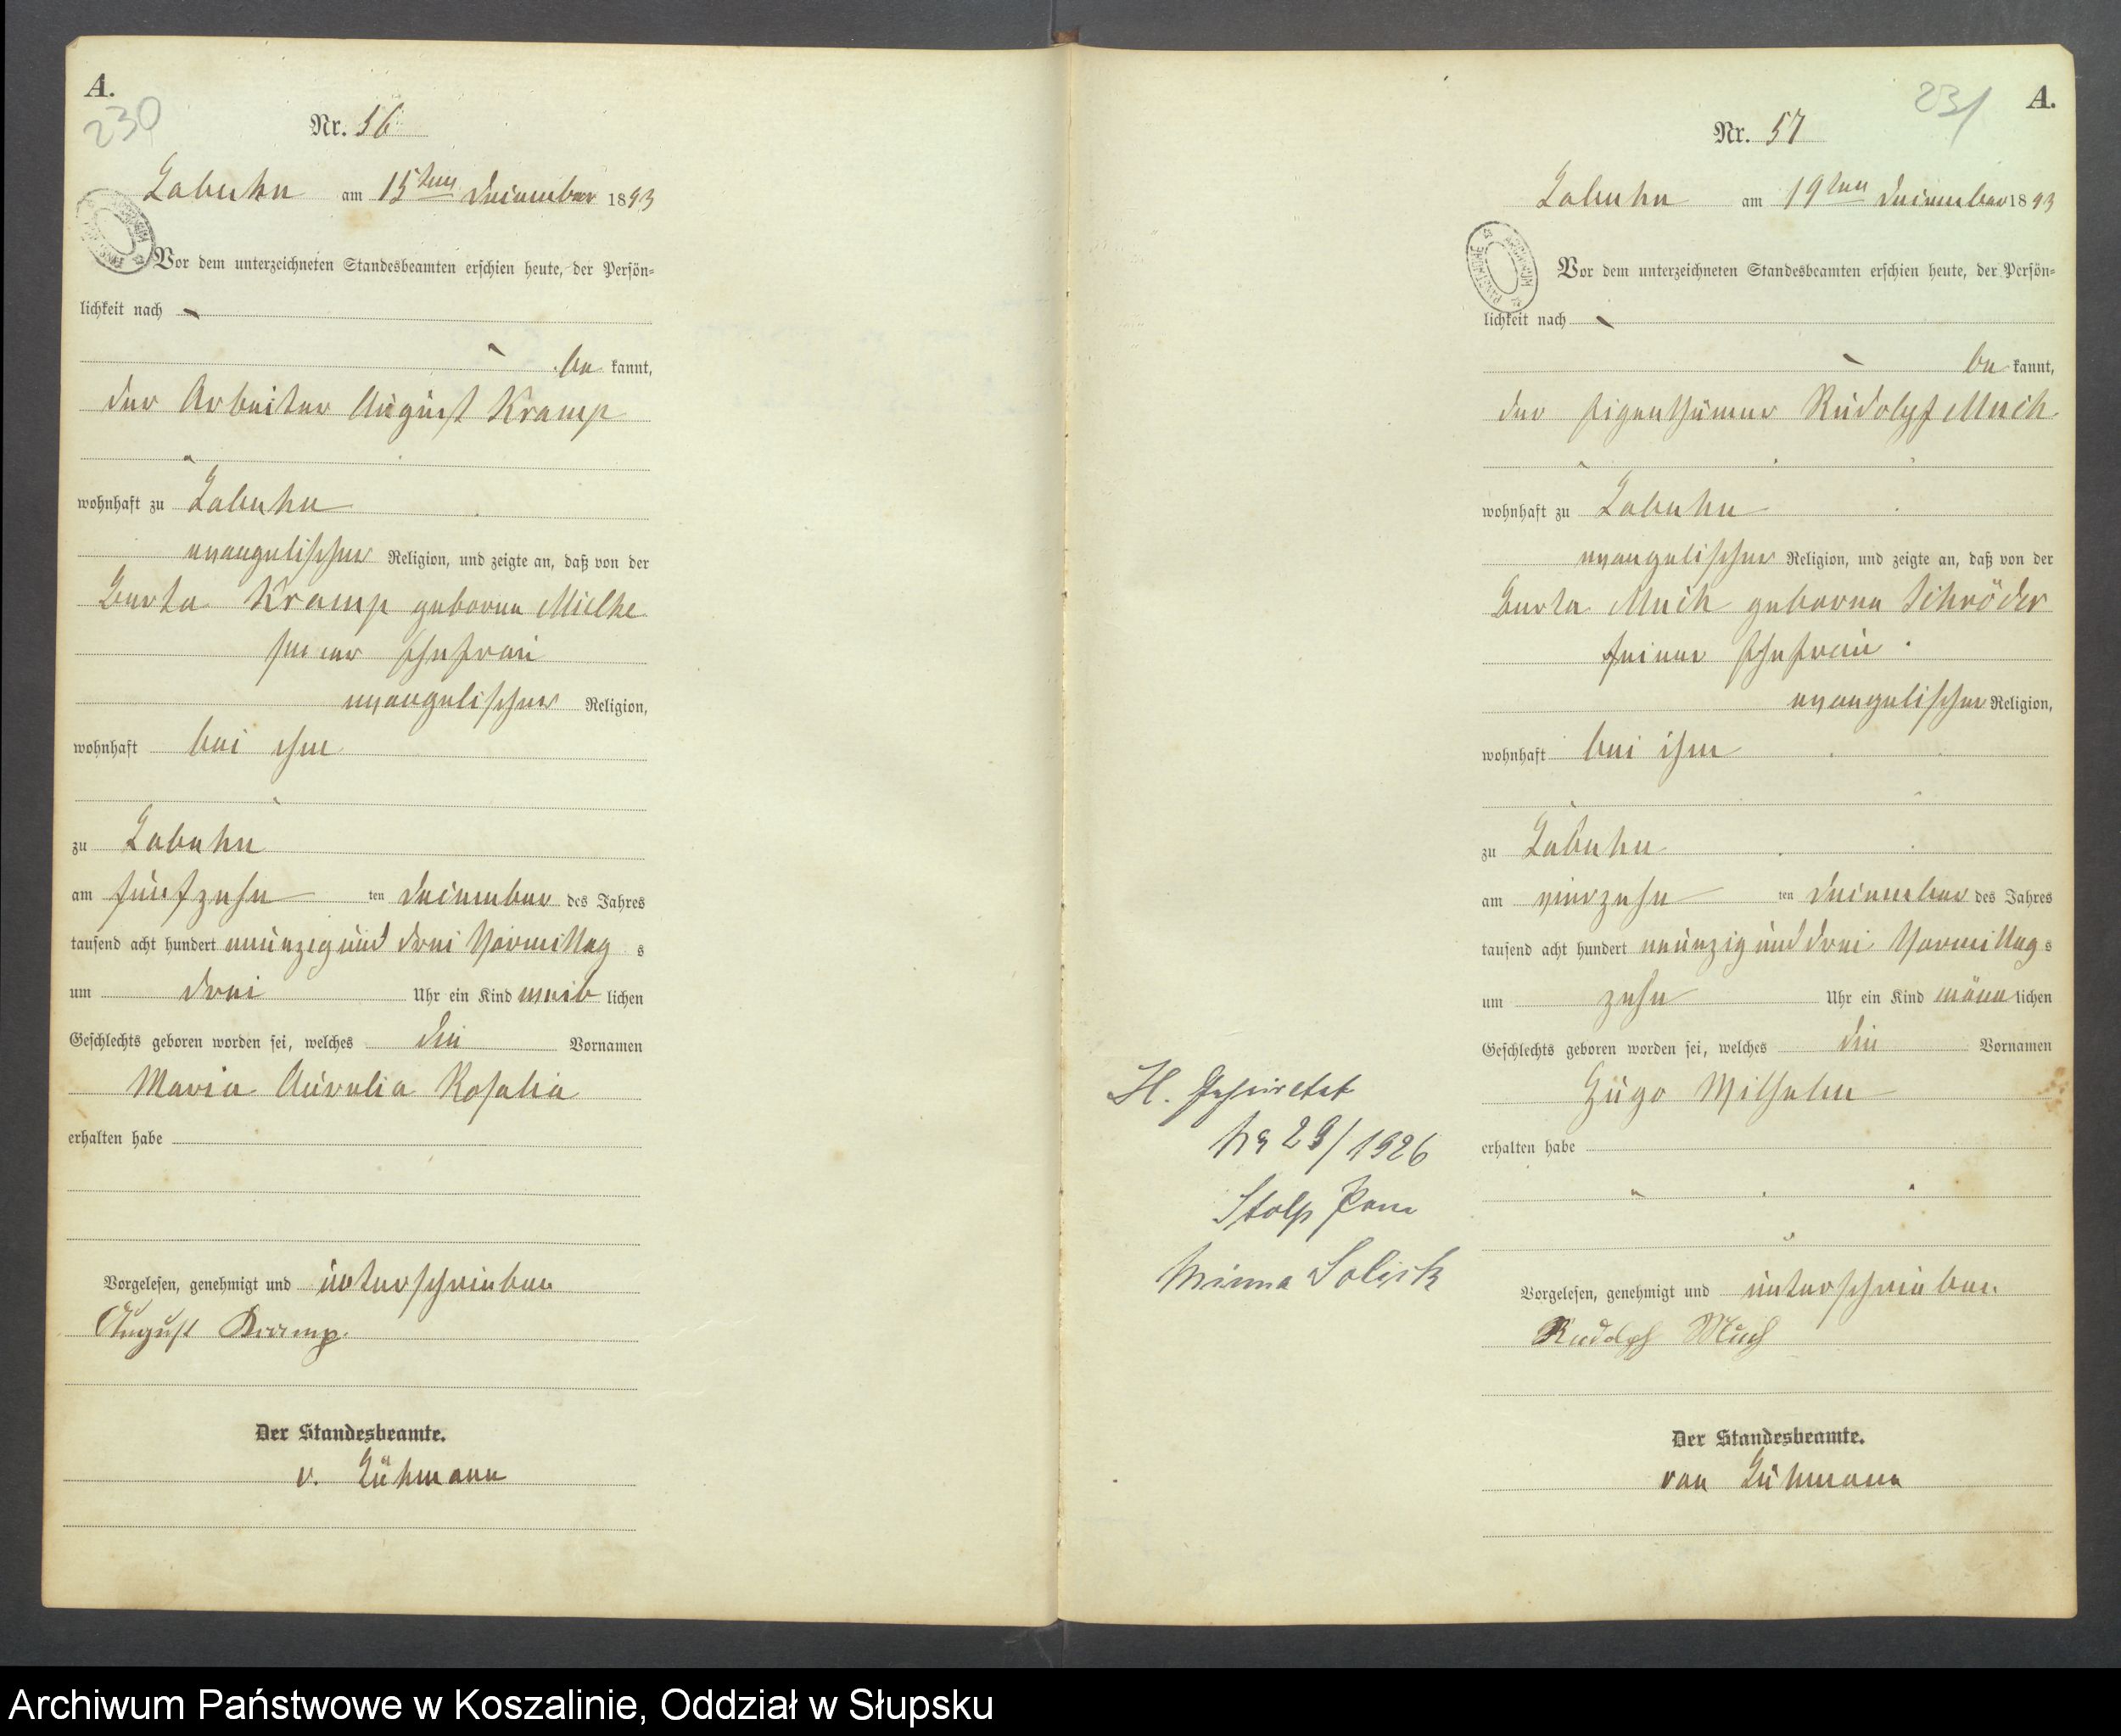 A.
230
Nr. 56
Labuhn am 15ten Dezember 1893
Vor dem unterzeichneten Standesbeamten erschien heute, der Persön=
lichkeit nach
be kannt,
der Arbeiter August Kramp
wohnhaft zu Labuhn
evangelischer Religion, und zeigte an, daß von der
Berta Kramp geborne Mielke
seiner Ehefrau
evangelischer Religion,
wohnhaft bei ihm
zu Labuhn
am fünfzehn ten Dezember des Jahres
tausend acht hundert neunzig und drei Vormittag s
um drei Uhr ein Kind weib lichen
Geschlechts geboren worden sei, welches die Vornamen
Maria Aurelia Rosalia
erhalten habe
Vorgelesen, genehmigt und unterschrieben
August Kramp.
Der Standesbeamte.
v. Lühmann
231
A.
Nr. 57
Labuhn am 19ten Dezember 1893
Vor dem unterzeichneten Standesbeamten erschien heute, der Persön=
lichkeit nach
be kannt,
der Eigenthümer Rudolph Much
wohnhaft zu Labuhn
evangelischer Religion, und zeigte an, daß von der
Berta Much geborne Schröder
seiner Ehefrau
evangelischer Religion,
wohnhaft bei ihm
zu Labuhn
am vierzehn ten Dezember des Jahres
tausend acht hundert neunzig und drei Vormittag s
um zehn Uhr ein Kind männ lichen
Geschlechts geboren worden sei, welches die Vornamen
Hugo Wilhelm
erhalten habe
Vorgelesen, genehmigt und unterschrieben.
Rudolph Much
Der Standesbeamte.
von Lühmann
H. Geheiratet
Nr 29/1926
Stolp Pom
Minna
Archiwum Państwowe w Koszalinie, Oddział w Słupsku